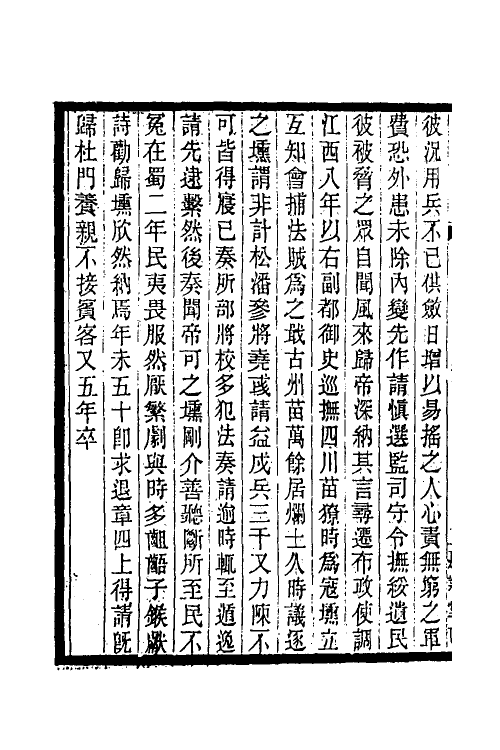 彼況用兵不已供斂日增以易搖之人心責無窮之軍
費恐外患未除內變先作請慎選監司守令撫綏遺民
彼被脅之眾自聞風來歸帝深納其言尋遷布政使調
江西八年以右副都御史巡撫四川苗獠時為寇壎立
互知會捕法賊為之戢古州苗萬餘居爛土久時議逐
之壎謂非計松潘參將堯彧請益戍兵三千又力陳不
可皆得寢已奏所部將校多犯法奏請逾時輒至遁逸
請先逮繫然後奏聞帝可之壎剛介善聽斷所至民不
冤在蜀二年民夷畏服然厭繁劇與時多齟齬子鍭獻
詩勸歸壎欣然納焉年未五十即求退章四上得請既
歸杜門養親不接賓客又五年卒